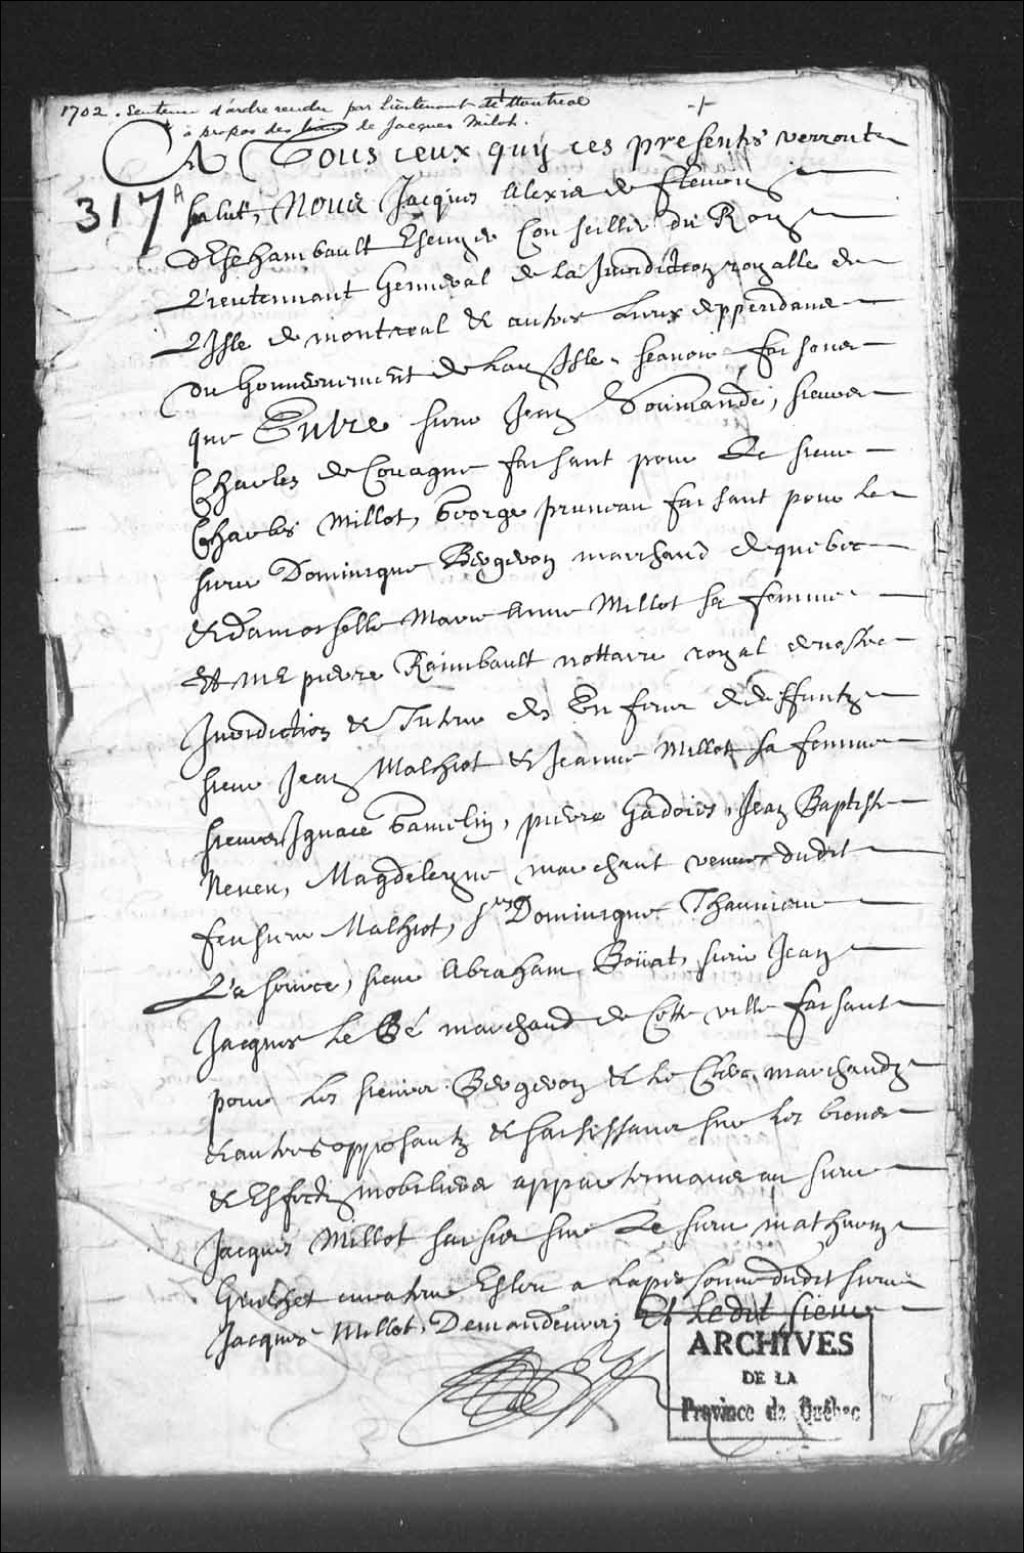 1702. Sentence d'ordre rendu par Lieutenant de Montreal
à propos des biens de Jacques Milot.
A Tous ceux quy ces presentes verront
317 A
Salut, Nous Jacques Alexis de Fleury
d'Eschambault Escuyer Conseiller du Roy
Lieutennant Genneral de la Jurediction royalle de
L'Isle de montreal & autres Lieux deppendans
du Gouvernement de Lad Isle, Scavoir faisons
que Entre sieur Jean Soumande, sieur
Charles de Couagne faisant pour Le sieur
Charles Millot, George pruneau faisant pour le
sieur Dominique Bergeron marchand de quebec
& damoiselle Marie Anne Millot sa femme
Et Me pierre Raimbault nottaire royal de nostre
Jurediction & Tuteur des Enfans de deffuntz
sieur Jean Malhiot & Jeanne Millot sa femme
sieurs Ignace Gamelin, pierre Gadois, Jean Baptiste
Neveu, Magdeleyne marchant veuve dudit
feu sieur Malhiot, sr Dominique Thaumeur
La source, sieur Abraham Boüat, sieur Jean
Jacques Le Bé marchand de Cette ville faisant
pour les sieurs Bergeron & Le Clerc marchandz
& autres opposantz & saisissans sur les biens
& Effectz mobiliers appartennans au sieur
Jacques Millot saisies sur Le sieur mathurin
Guilhet curateur Esleu a la personne dudit sieur
Jacques Millot, Demandeurs Et Ledit sieur
ARCHIVES
DE LA
Province de Québec